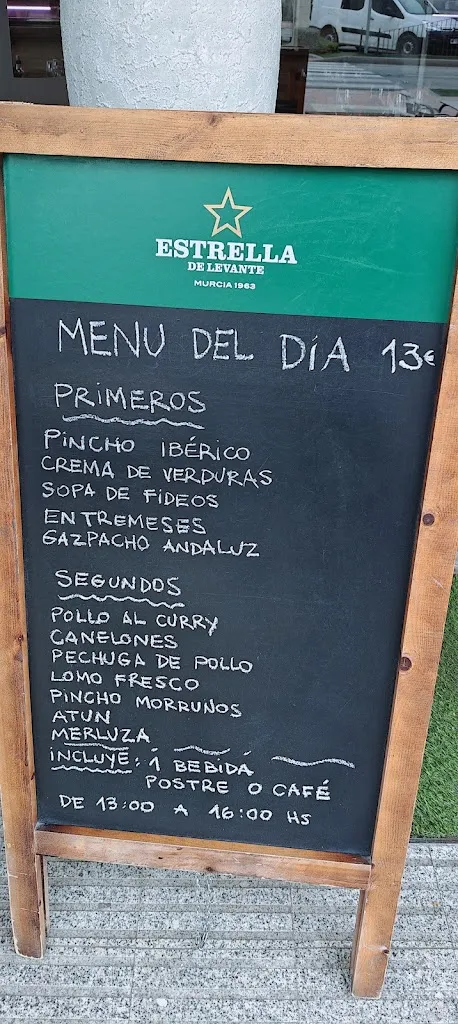 ESTRELLA
DE LEVANTE
MURCIA 1963
MENU DEL DÍA 13€
PRIMEROS
PINCHO IBÉRICO
CREMA DE VERDURAS
SOPA DE FIDEOS
ENTREMESES
GAZPACHO ANDALUZ
SEGUNDOS
POLLO AL CURRY
CANELONES
PECHUGA DE POLLO
LOMO FRESCO
PINCHO MORRUNOS
ATUN
MERLUZA
INCLUYE: 1 BEBIDA
POSTRE O CAFÉ
DE 13:00 A 16:00 HS